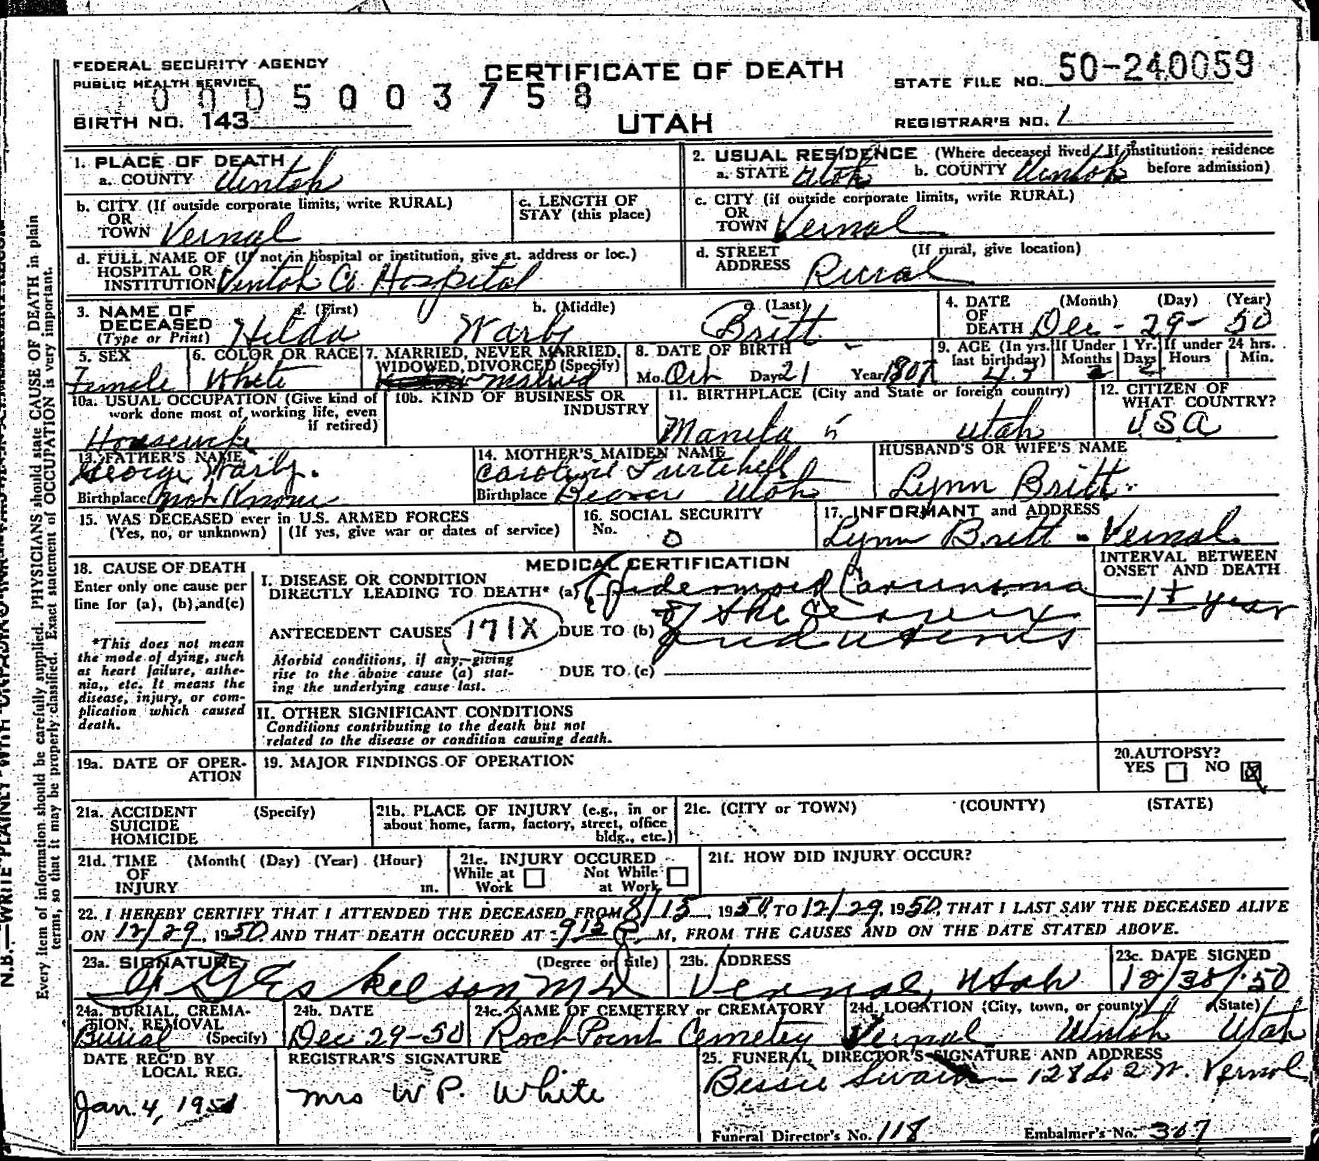 FEDERAL SECURITY AGENCY
PUBLIC HEALTH SERVICE
CERTIFICATE OF DEATH
STATE FILE NO. 50-240059
0005003758
BIRTH NO. 143
UTAH
REGISTRAR'S NO. 1
1. PLACE OF DEATH
a. COUNTY Uintah
2. USUAL RESIDENCE (Where deceased lived. If institution: residence before admission)
a. STATE Utah b. COUNTY Uintah
b. CITY (If outside corporate limits, write RURAL)
OR
TOWN Vernal
c. LENGTH OF
STAY (this place)
c. CITY (if outside corporate limits, write RURAL)
OR
TOWN Vernal
d. FULL NAME OF (If not in hospital or institution, give st. address or loc.)
HOSPITAL OR
INSTITUTION Uintah Co. Hospital
d. STREET (If rural, give location)
ADDRESS Rural
3. NAME OF
DECEASED
(Type or Print)
a. (First) b. (Middle) c. (Last)
Hilda Warby Britt
4. DATE (Month) (Day) (Year)
OF
DEATH Dec - 29 - 50
5. SEX
Female
6. COLOR OR RACE
White
7. MARRIED, NEVER MARRIED,
WIDOWED, DIVORCED (Specify)
married
8. DATE OF BIRTH
Mo. Oct Day 21 Year 1907
9. AGE (In yrs. last birthday) If Under 1 Yr. If under 24 hrs.
Months Days Hours Min.
43 2
10a. USUAL OCCUPATION (Give kind of
work done most of working life, even
if retired)
Housewife
10b. KIND OF BUSINESS OR
INDUSTRY
11. BIRTHPLACE (City and State or foreign country)
Manila Utah
12. CITIZEN OF
WHAT COUNTRY?
USA
13. FATHER'S NAME
George Warby.
Birthplace not Known
14. MOTHER'S MAIDEN NAME
Caroline Twitchell
Birthplace Beaver Utah
HUSBAND'S OR WIFE'S NAME
Lynn Britt.
15. WAS DECEASED ever in U.S. ARMED FORCES
(Yes, no, or unknown) (If yes, give war or dates of service)
16. SOCIAL SECURITY
No. 0
17. INFORMANT and ADDRESS
Lynn Britt - Vernal.
18. CAUSE OF DEATH
Enter only one cause per
line for (a), (b), and (c)
*This does not mean
the mode of dying, such
as heart failure, asthe-
nia,, etc. It means the
disease, injury, or com-
plication which caused
death.
MEDICAL CERTIFICATION
I. DISEASE OR CONDITION
DIRECTLY LEADING TO DEATH* (a) Epidermoid Carcinoma
of the Cervix
ANTECEDENT CAUSES 171X DUE TO (b)
Morbid conditions, if any, giving
rise to the above cause (a) stat-
ing the underlying cause last.
DUE TO (c)
INTERVAL BETWEEN
ONSET AND DEATH
1+ year
II. OTHER SIGNIFICANT CONDITIONS
Conditions contributing to the death but not
related to the disease or condition causing death.
19a. DATE OF OPER-
ATION
19. MAJOR FINDINGS OF OPERATION
20. AUTOPSY?
YES NO
21a. ACCIDENT (Specify)
SUICIDE
HOMICIDE
21b. PLACE OF INJURY (e.g., in or
about home, farm, factory, street, office
bldg., etc.)
21c. (CITY or TOWN) (COUNTY) (STATE)
21d. TIME (Month( (Day) (Year) (Hour)
OF
INJURY m.
21e. INJURY OCCURED
While at Work Not While at Work
21f. HOW DID INJURY OCCUR?
22. I HEREBY CERTIFY THAT I ATTENDED THE DECEASED FROM 8/15, 1950, TO 12/29, 1950, THAT I LAST SAW THE DECEASED ALIVE
ON 12/29, 1950. AND THAT DEATH OCCURED AT 915 P. M, FROM THE CAUSES AND ON THE DATE STATED ABOVE.
23a. SIGNATURE (Degree or title)
Eskelson MD
23b. ADDRESS
Vernal, Utah
23c. DATE SIGNED
12/30/50
24a. BURIAL, CREMA-
TION, REMOVAL
(Specify)
Burial
24b. DATE
Dec 29-50
24c. NAME OF CEMETERY or CREMATORY
Rock Point Cemetery
24d. LOCATION (City, town, or county) (State)
Vernal Uintah Utah
DATE REC'D BY
LOCAL REG.
Jan. 4, 1951
REGISTRAR'S SIGNATURE
Mrs W P. White
25. FUNERAL DIRECTOR'S SIGNATURE AND ADDRESS
Bessie Swain - 128 So 2 W. Vernal
Funeral Director's No. 118 Embalmer's No. 307
N.B.—WRITE PLAINLY WITH UNFADING INK
Every item of information should be carefully supplied. PHYSICIANS should state CAUSE OF DEATH in plain
terms, so that it may be properly classified. Exact statement of OCCUPATION is very important.